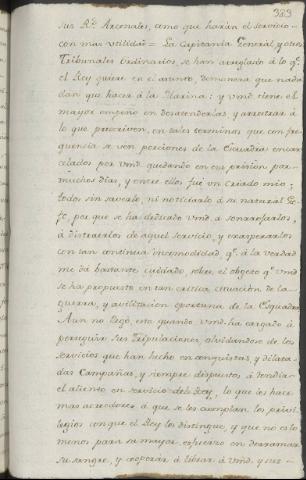 323
sus R.s Arsenales, como que harían el servicio
con mas utilidad = La Capitania General, y otros
Tribunales Ordinarios, se han arreglado á lo q.e
el Rey quiere en el asunto, demanera que nada
dan que hacer á la Marina; y vmd. tiene el
mayor empeño en desatenderlas y arrestar á
lo que prescriven, en tales terminos que con fre-
quencia se ven porciones de la Esquadra encar-
celados por vmd. quedando en esa prision por
muchos dias, y entre ellos fué un criado mio;
todos sin saverlo, ni noticiarlo á su natural Ge-
fe, por que se ha dedicado vmd. á
á distraerlos de aquel servicio, y exasperarlos
con tan continua incomodidad, q.e á la verdad
me dá bastante cuidado sobre el objeto q.e vmd.
se ha propuesto en tan critica situacion de la
guerra, y avilitacion oportuna de la Esquadra
Aun no llegó, esto quando vmd. ha cargado á
perseguir sus Tripulaciones, olvidandose de los
servicios que han hecho en conquistas, y dilata-
das Campañas, y siempre dispuestos á rendir
el aliento en servicio del Rey, lo que los hace
mas acreedores á que se les cumplan los privi-
legios con que el Rey los distingue, y que no es lo
menos para su mayor esfuerzo en derramar
su sangre, y cooperar á librar á vmd. y sus